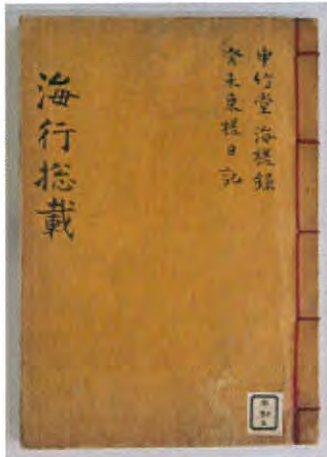 申竹堂 海槎錄
癸未東槎日記
海行捴載